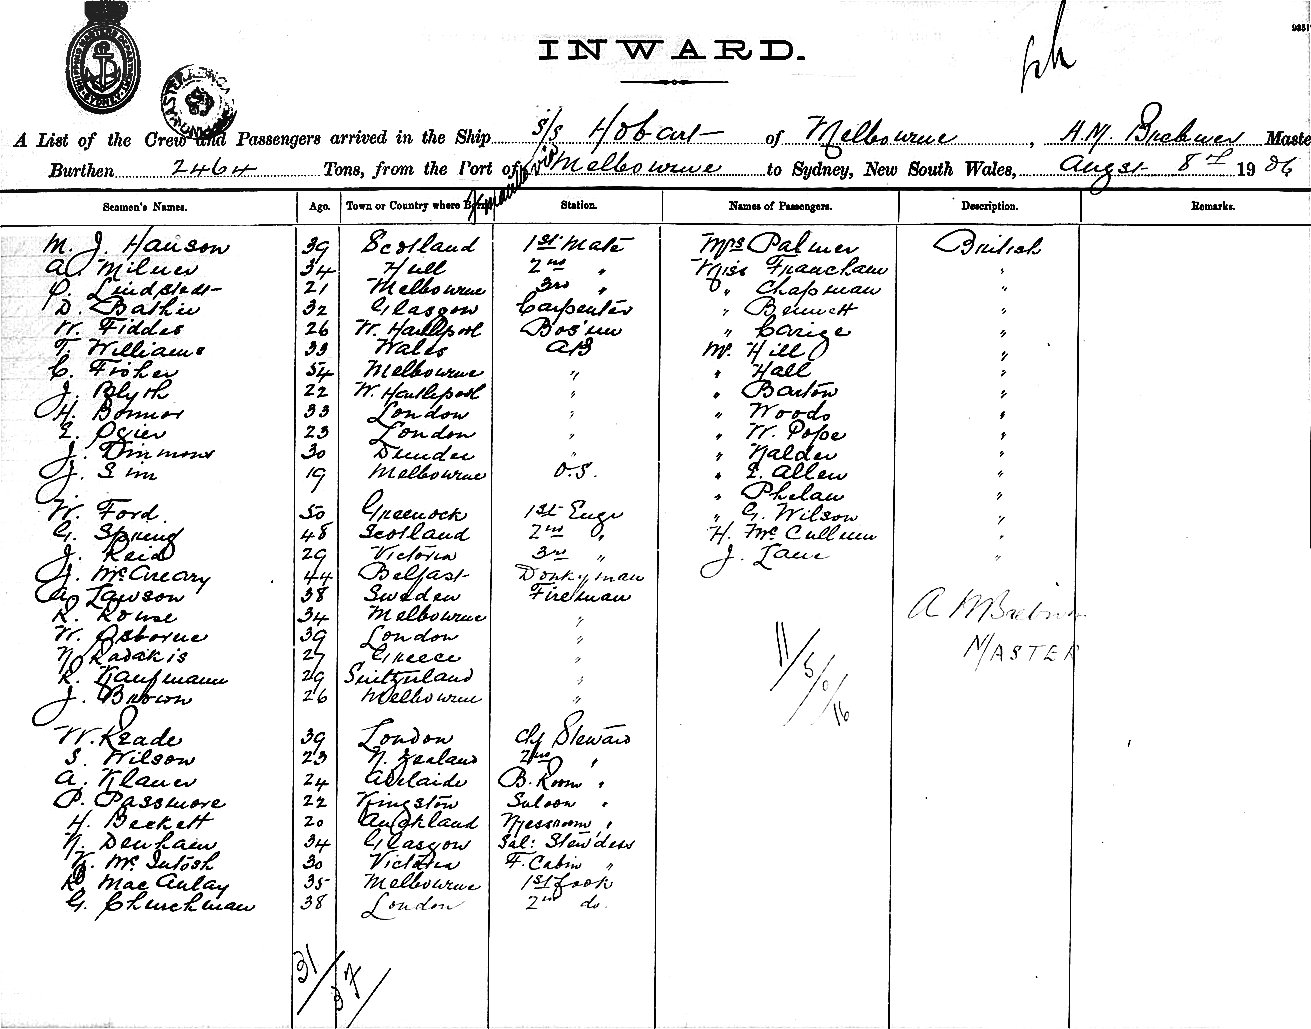 INWARD.
A List of the Crew and Passengers arrived in the Ship S/S Hobart of Melbourne, A.M. Master
Burthen 2464 Tons, from the Port of Melbourne to Sydney, New South Wales, August 8th 1906
Seamen's Names. Age. Town or Country where Born. Station. Names of Passengers. Description. Remarks.
M. J. Hanson 39 Scotland 1st Mate Mrs Palmer British
A. Milner 34 Hull 2nd " Miss Francham "
C. Lindstedt 21 Melbourne 3rd " " Chapman "
D. Bathie 32 Glasgow Carpenter " Bennett "
W. Fiddes 26 W. Hartlepool Bos'un " Carige "
T. Williams 33 Wales AB Mr. Hill "
C. Fisher 54 Melbourne " " Hall "
J. Blyth 22 W. Hartlepool " " Barton "
H. Bonnor 33 London " " Woods "
E. Ogier 23 London " " W. Pope "
J. Dimmons 30 Dundee " " Nalder "
J. Sim 19 Melbourne O.S. " E. Allen "
" Phelan "
W. Ford. 50 Greenock 1st Engr " G. Wilson "
G. Spring 48 Scotland 2nd " H. McCullum "
J. Reid 29 Victoria 3rd " J. Lane "
J. McCreary 44 Belfast Donkyman
A. Lawson 38 Sweden Fireman
R. Rowse 34 Melbourne "
W. Osborne 39 London "
N. Kadakis 27 Greece "
R. Kaufmann 29 Switzerland "
J. Brown 26 Melbourne "
MASTER
W. Reade 39 London Chf Steward
S. Wilson 23 N. Zealand 2nd "
A. Klauer 24 Adelaide B. Room "
P. Passmore 22 Kingston Saloon "
H. Beckett 20 Auckland Messroom "
N. Denham 34 Glasgow Sal: Stew'dess
K. McIntosh 30 Victoria F. Cabin "
R. MacAulay 35 Melbourne 1st Cook
G. Churchman 38 London 2nd do.
31/37